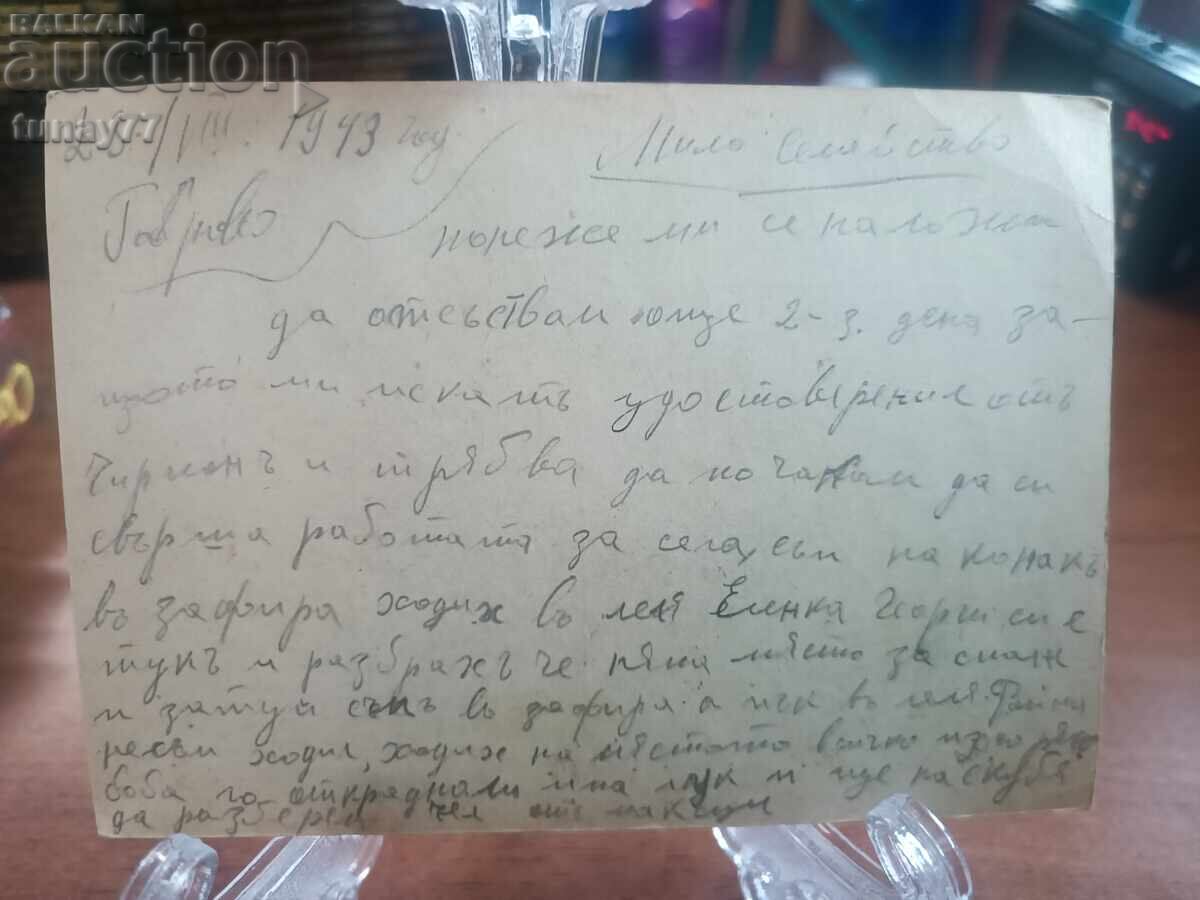 BALKAN
auction
tunay77
/III. 1943 год.
Мило семейство
Габрово
понеже ми се наложи
да отсъствам още 2-3. дена за-
щото ми искатъ удостоверение отъ
и трябва да почакам да си
свърша работата за сега съм на конакъ
въ зафира ходих въ леля Еленка Георги си е
тукъ и разбрахъ че няма място за спане
и затуй съмъ въ зафира а пък въ леля
несъм ходил, ходих на мястото всичко
боба го откраднали има лук и ще
да разбереш че от